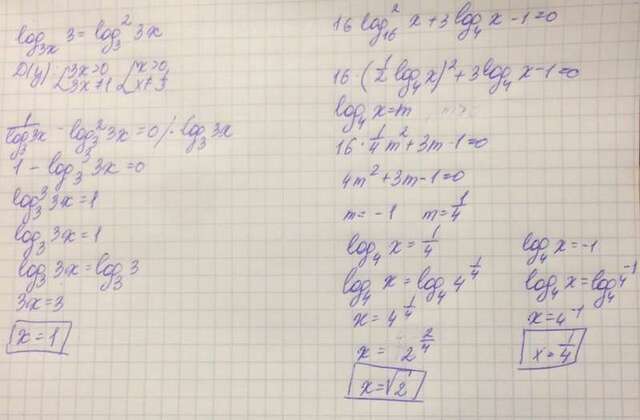 log_{3x} 3 = log_3^2 3x
D(y) [3x>0 [x>0
3x≠1 x≠1/3
1/log_3 3x - log_3^2 3x = 0 /· log_3 3x
1 - log_3^3 3x = 0
log_3^3 3x = 1
log_3 3x = 1
log_3 3x = log_3 3
3x = 3
x = 1
16 log_{16}^2 x + 3 log_4 x - 1 = 0
16 · (1/2 log_4 x)^2 + 3 log_4 x - 1 = 0
log_4 x = m
16 · 1/4 m^2 + 3m - 1 = 0
4m^2 + 3m - 1 = 0
m = -1 m = 1/4
log_4 x = 1/4
log_4 x = log_4 4^{1/4}
x = 4^{1/4}
x = 2^{2/4}
x = √2
log_4 x = -1
log_4 x = log_4 4^{-1}
x = 4^{-1}
x = 1/4